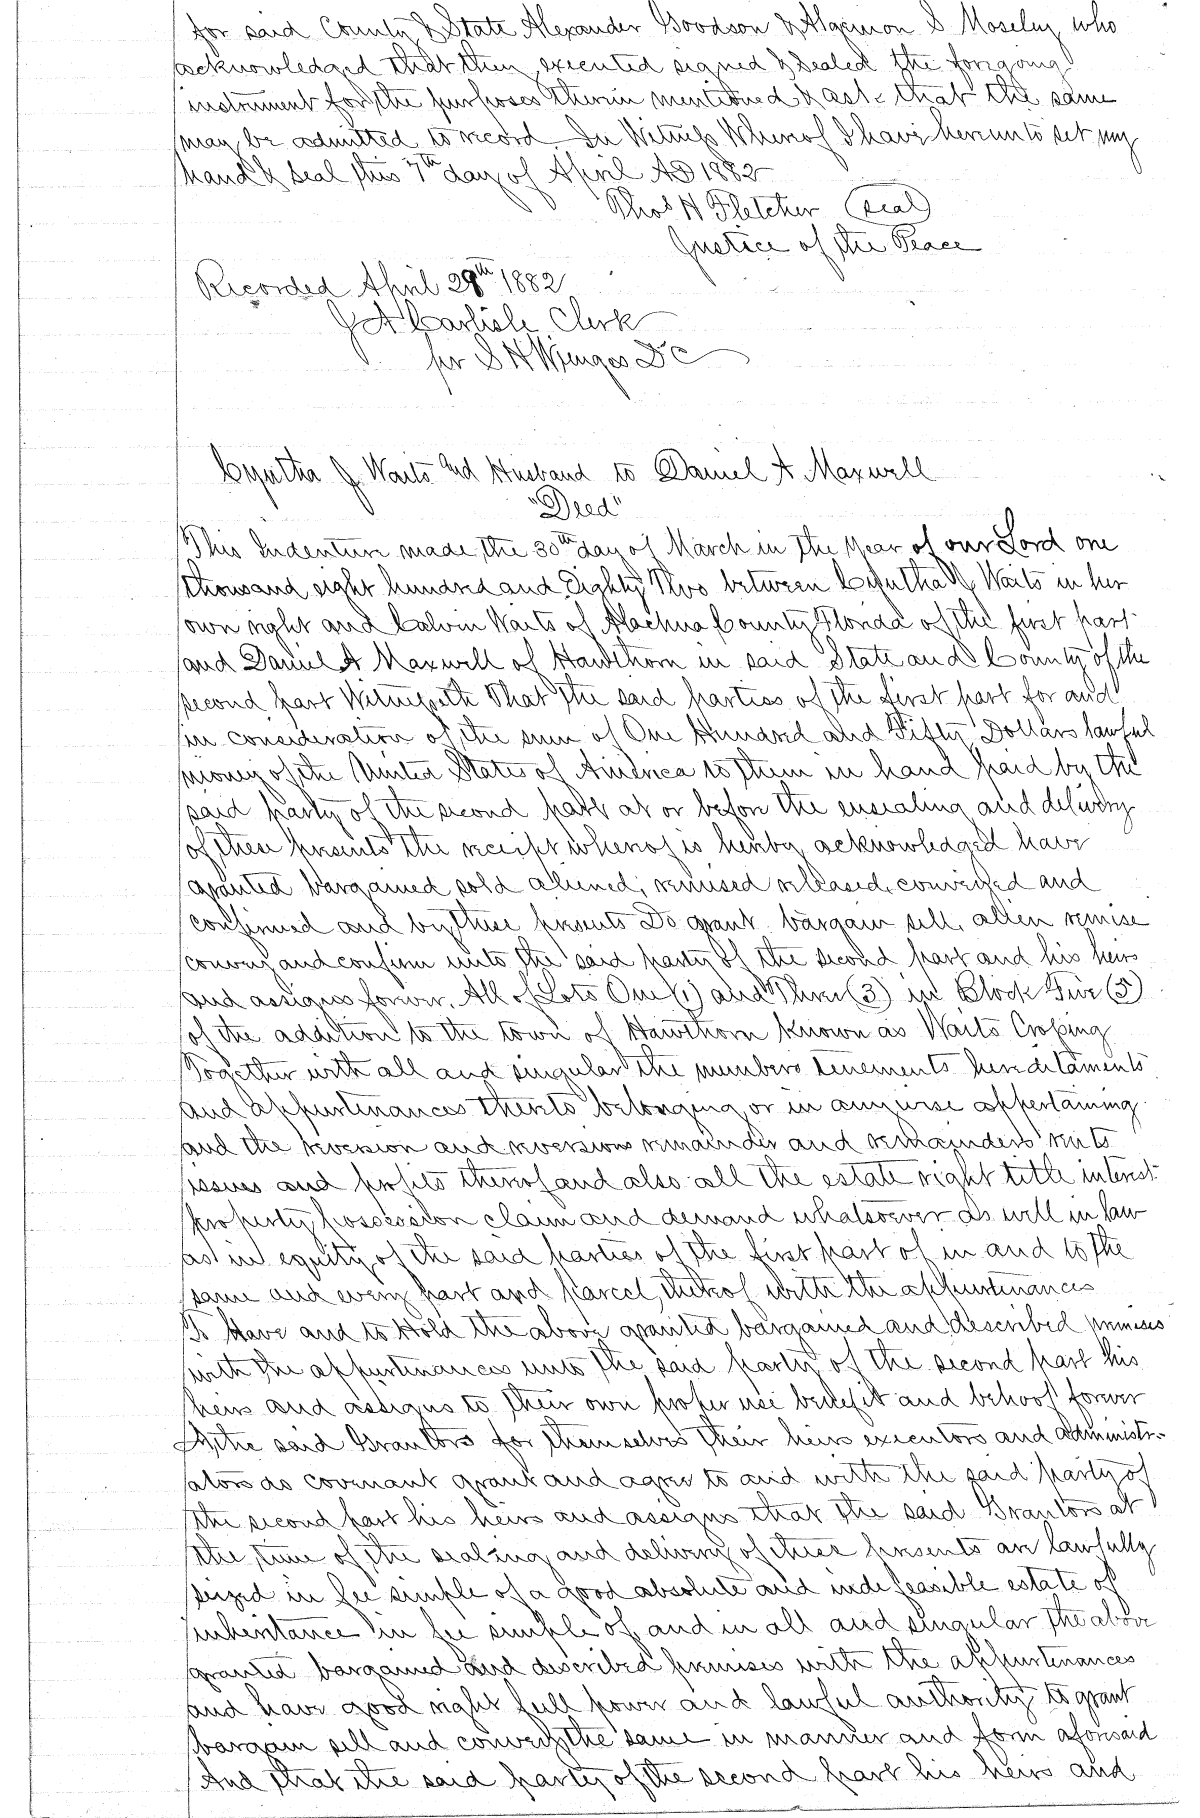 for said County & State Alexander Goodson & Algernon S Moseley who
acknowledged that they executed signed & sealed the foregoing
instrument for the purposes therein mentioned & ask that the same
may be admitted to record In Witness Whereof I have hereunto set my
hand & seal this 7th day of April AD 1882
Thos H Fletcher (seal)
Justice of the Peace
Recorded April 28th 1882
J A Carlisle Clerk
per S H Wienges D C
Cyntha J Waits and Husband to Daniel A Maxwell
"Deed"
This Indenture made the 30th day of March in the year of our Lord one
thousand eight hundred and Eighty Two between Cyntha J Waits in her
own right and Calvin Waits of Alachua County Florida of the first part
and Daniel A Maxwell of Hawthorn in said State and County of the
second part Witnesseth That the said parties of the first part for and
in consideration of the sum of One Hundred and Fifty Dollars lawful
money of the United States of America to them in hand paid by the
said party of the second part at or before the ensealing and delivery
of these presents the receipt whereof is hereby acknowledged have
granted bargained sold aliened, remised released, conveyed and
confirmed and by these presents Do grant bargain sell, alien remise
convey and confirm unto the said party of the second part and his heirs
and assigns forever, All of Lots One (1) and Three (3) in Block Five (5)
of the addition to the town of Hawthorn known as Waits Crossing
Together with all and singular the members tenements hereditaments
and appurtenances thereto belonging or in anywise appertaining
and the reversion and reversions remainder and remainders rents
issues and profits thereof and also all the estate right title interest
property possession claim and demand whatsoever as well in law
as in equity of the said parties of the first part of in and to the
same and every part and parcel thereof with the appurtenances
To Have and to Hold the above granted bargained and described premises
with the appurtenances unto the said party of the second part his
heirs and assigns to their own proper use benefit and behoof forever
& the said Grantors for themselves their heirs executors and administr-
ators do covenant grant and agree to and with the said party of
the second part his heirs and assigns that the said Grantors at
the time of the sealing and delivery of these presents are lawfully
seized in fee simple of a good absolute and indefeasible estate of
inheritance in fee simple of and in all and singular the above
granted bargained and described premises with the appurtenances
and have good right full power and lawful authority to grant
bargain sell and convey the same in manner and form aforesaid
And that the said party of the second part his heirs and